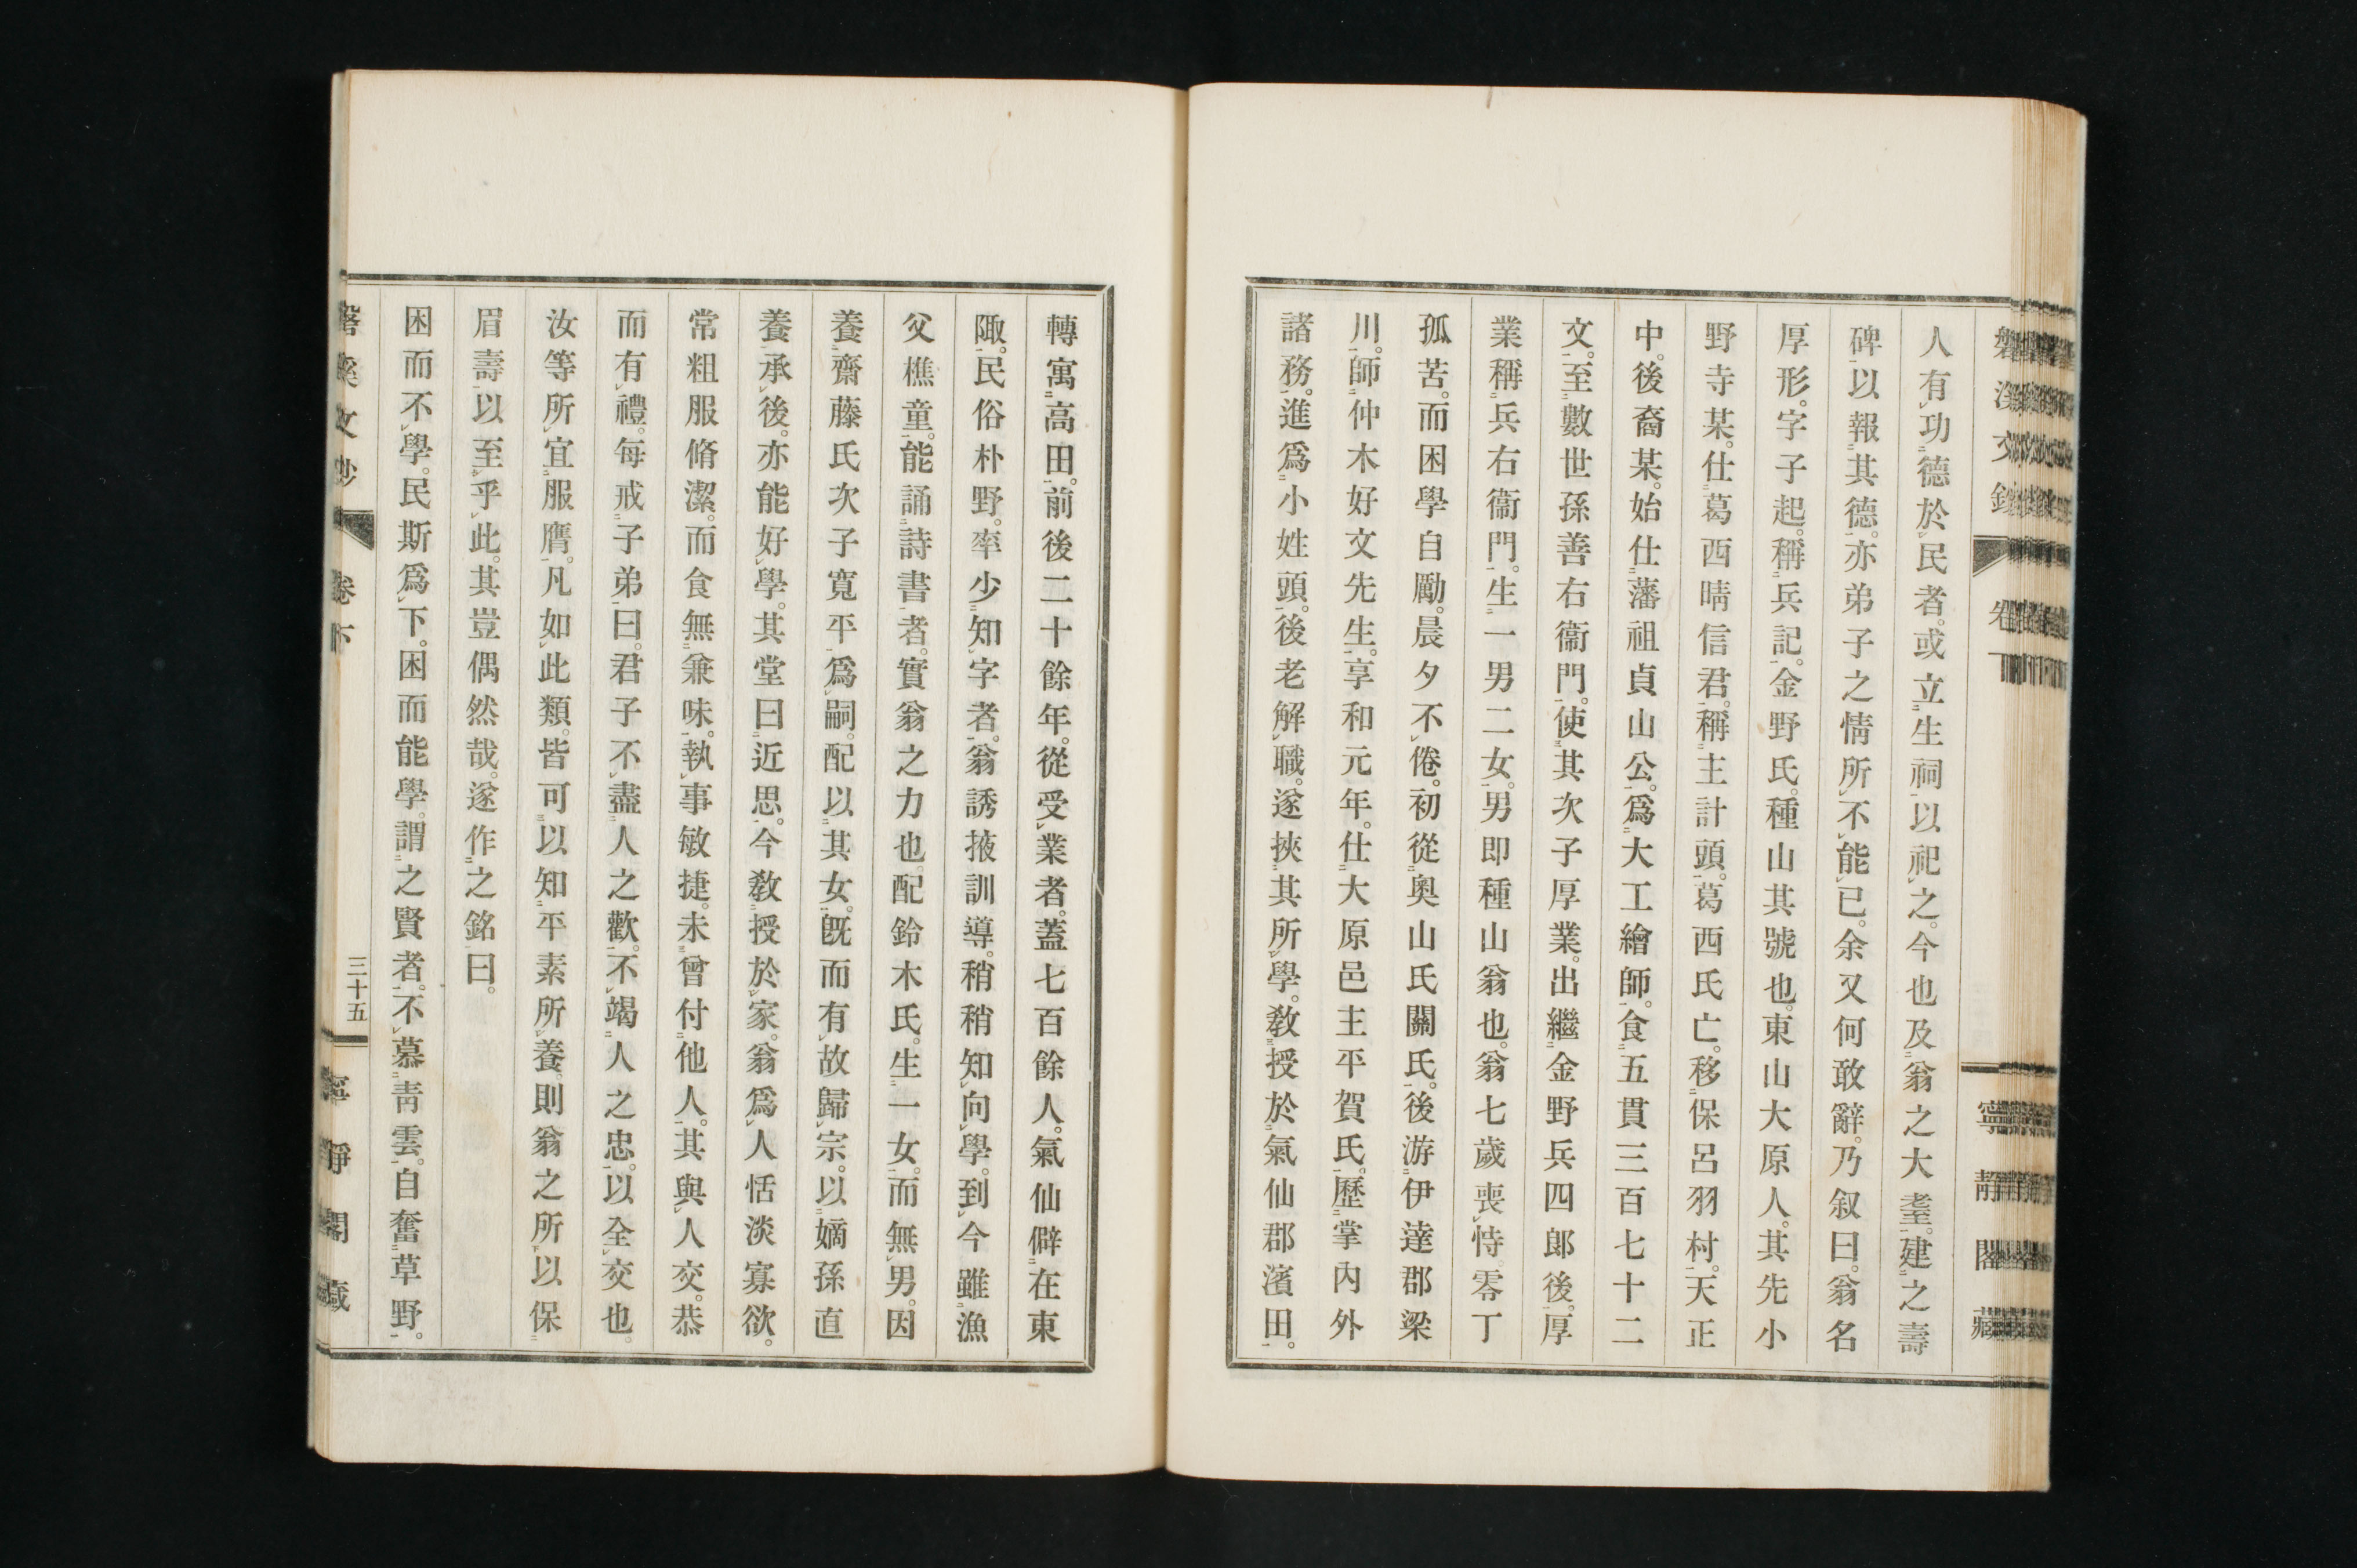 人有功德於民者。或立生祠以祀之。今也及翁之大耋。建之壽
碑以報其德。亦弟子之情所不能已。余又何敢辭。乃叙曰。翁名
厚形。字子起。稱兵記。金野氏。種山其號也。東山大原人。其先小
野寺某。仕葛西晴信君。稱主計頭。葛西氏亡。移保呂羽村。天正
中。後裔某。始仕藩祖貞山公。爲大工繪師。食五貫三百七十二
文。至數世孫善右衞門。使其次子厚業。出繼金野兵四郎後。厚
業稱兵右衞門。生一男二女。男即種山翁也。翁七歲喪恃。零丁
孤苦。而困學自勵。晨夕不倦。初從奥山氏關氏。後游伊達郡梁
川。師仲木好文先生。享和元年。仕大原邑主平賀氏。歷掌內外
諸務。進爲小姓頭。後老解職。遂挾其所學。教授於氣仙郡濱田。
轉寓高田。前後二十餘年。從受業者。蓋七百餘人。氣仙僻在東
陬。民俗朴野。率少知字者。翁誘掖訓導。稍稍知向學。到今雖漁
父樵童。能誦詩書者。實翁之力也。配鈴木氏。生一女。而無男。因
養齋藤氏次子寬平爲嗣。配以其女。既而有故歸宗。以嫡孫直
養承後。亦能好學。其堂曰近思。今敎授於家。翁爲人恬淡寡欲。
常粗服脩潔。而食無兼味。執事敏捷。未曾付他人。其與人交。恭
而有禮。每戒子弟曰。君子不盡人之歡。不竭人之忠。以全交也。
汝等所宜服膺。凡如此類。皆可以知平素所養。則翁之所以保
眉壽以至乎此。其豈偶然哉。遂作之銘曰。
困而不學。民斯爲下。困而能學。謂之賢者。不慕靑雲。自奮草野。
卷下
三十五
寧靜閣藏